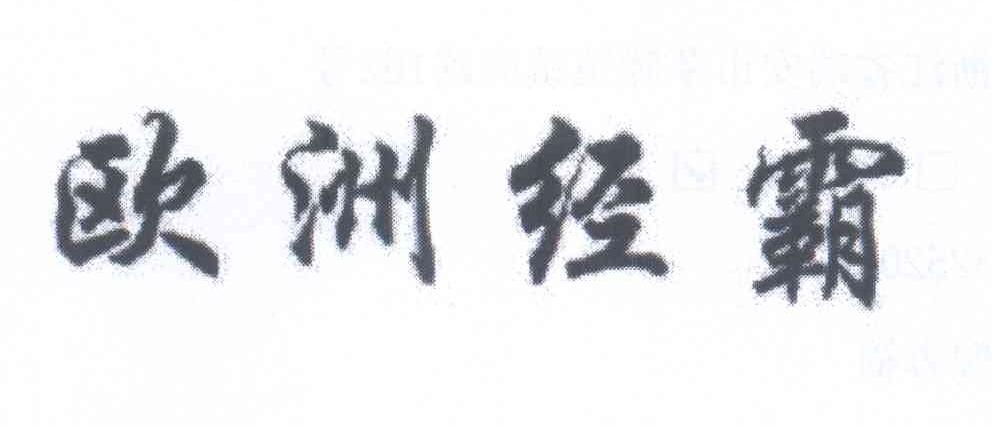 欧洲经霸